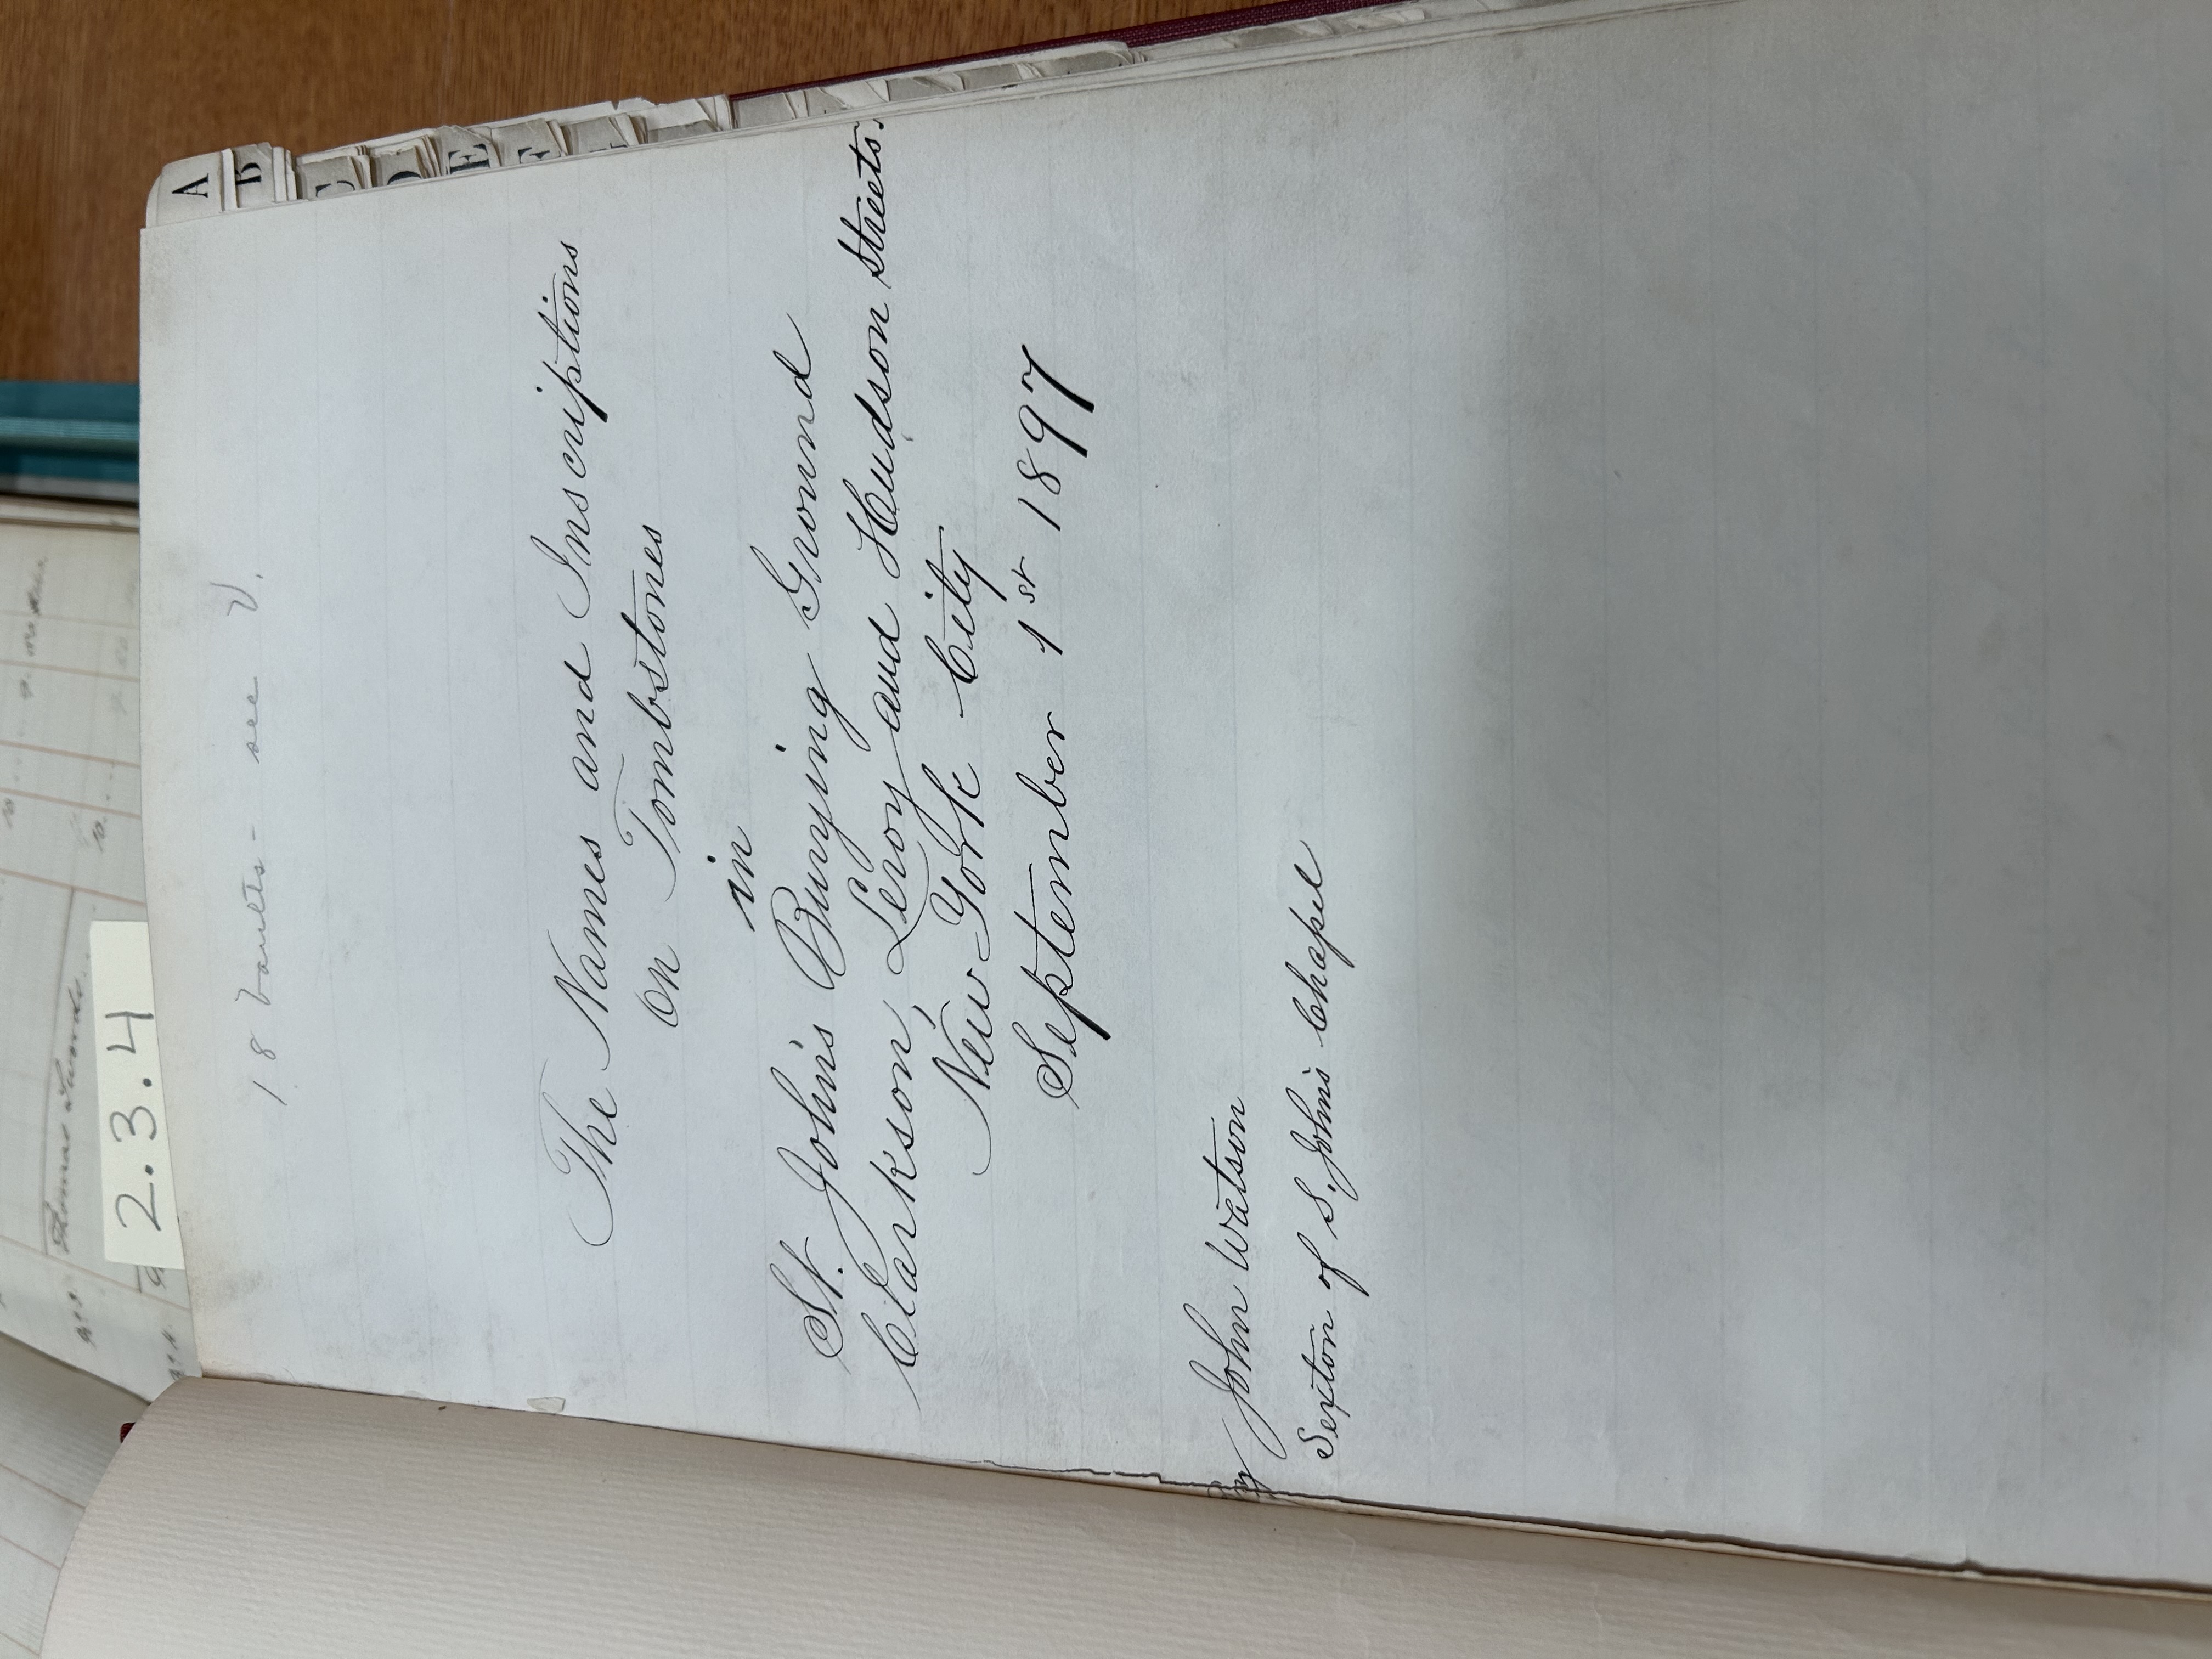 18 vaults - see V.
The Names and Inscriptions
on Tombstones
in
St. John's Burying Ground
Clarkson, Leroy and Hudson Streets.
New York City
September 1st 1897
By John Watson
Sexton of S. John's Chapel
2.3.4
A
B
C
D
E
F